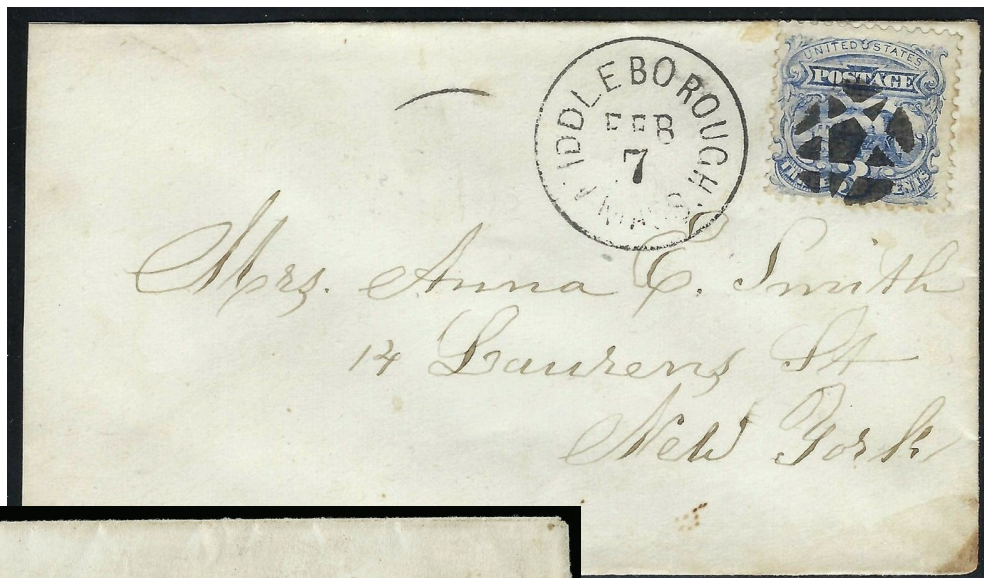 MIDDLEBOROUGH. MASS.
FEB
7
UNITED STATES
POSTAGE
3
Mrs. Anna C. Smith
14 Laurens St
New York